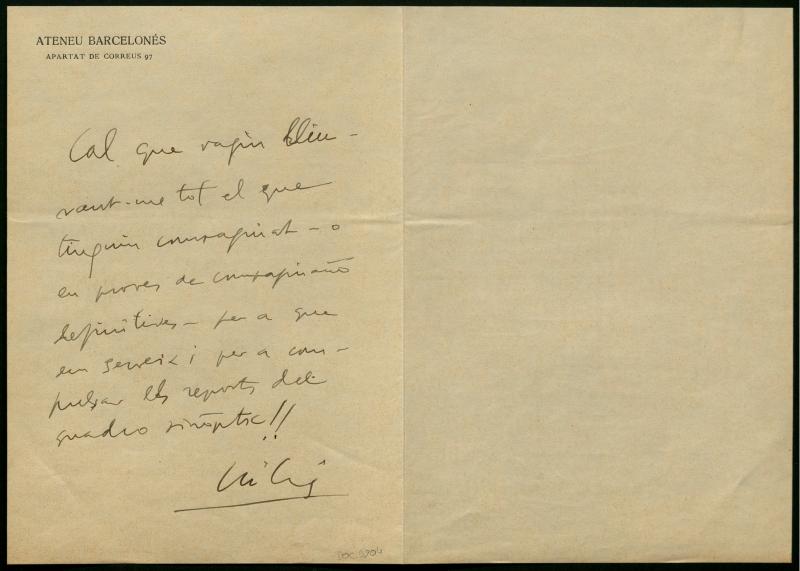 ATENEU BARCELONÉS
APARTAT DE CORREUS 97
Cal que vagin lliu-
rant-me tot el que
tinguin compaginat - o
en proves de compaginació
definitives - per a que
em serveixi per a com-
pulsar els reports del
quadro sinòptic!!
DOC. 9304